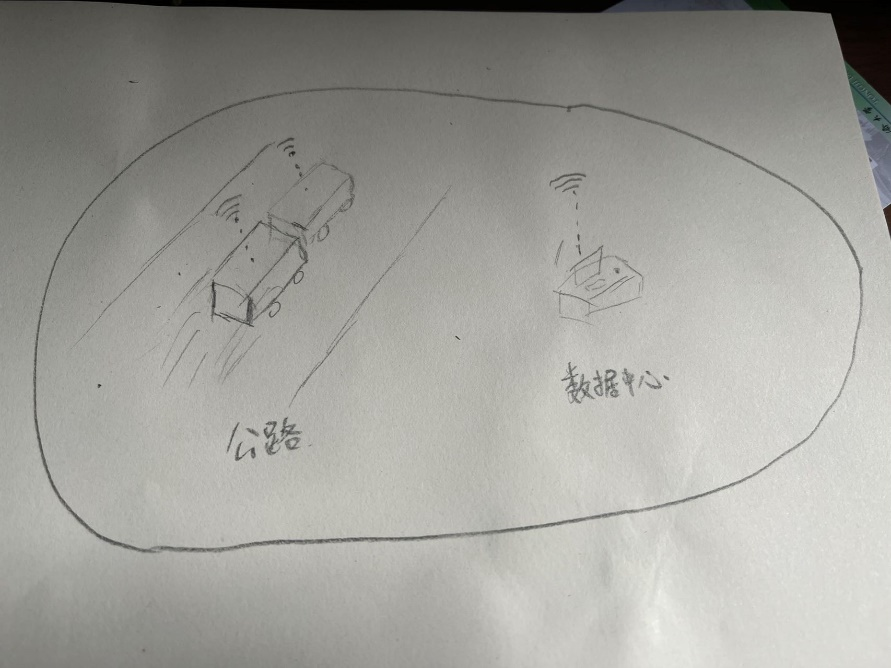 公路
数据中心